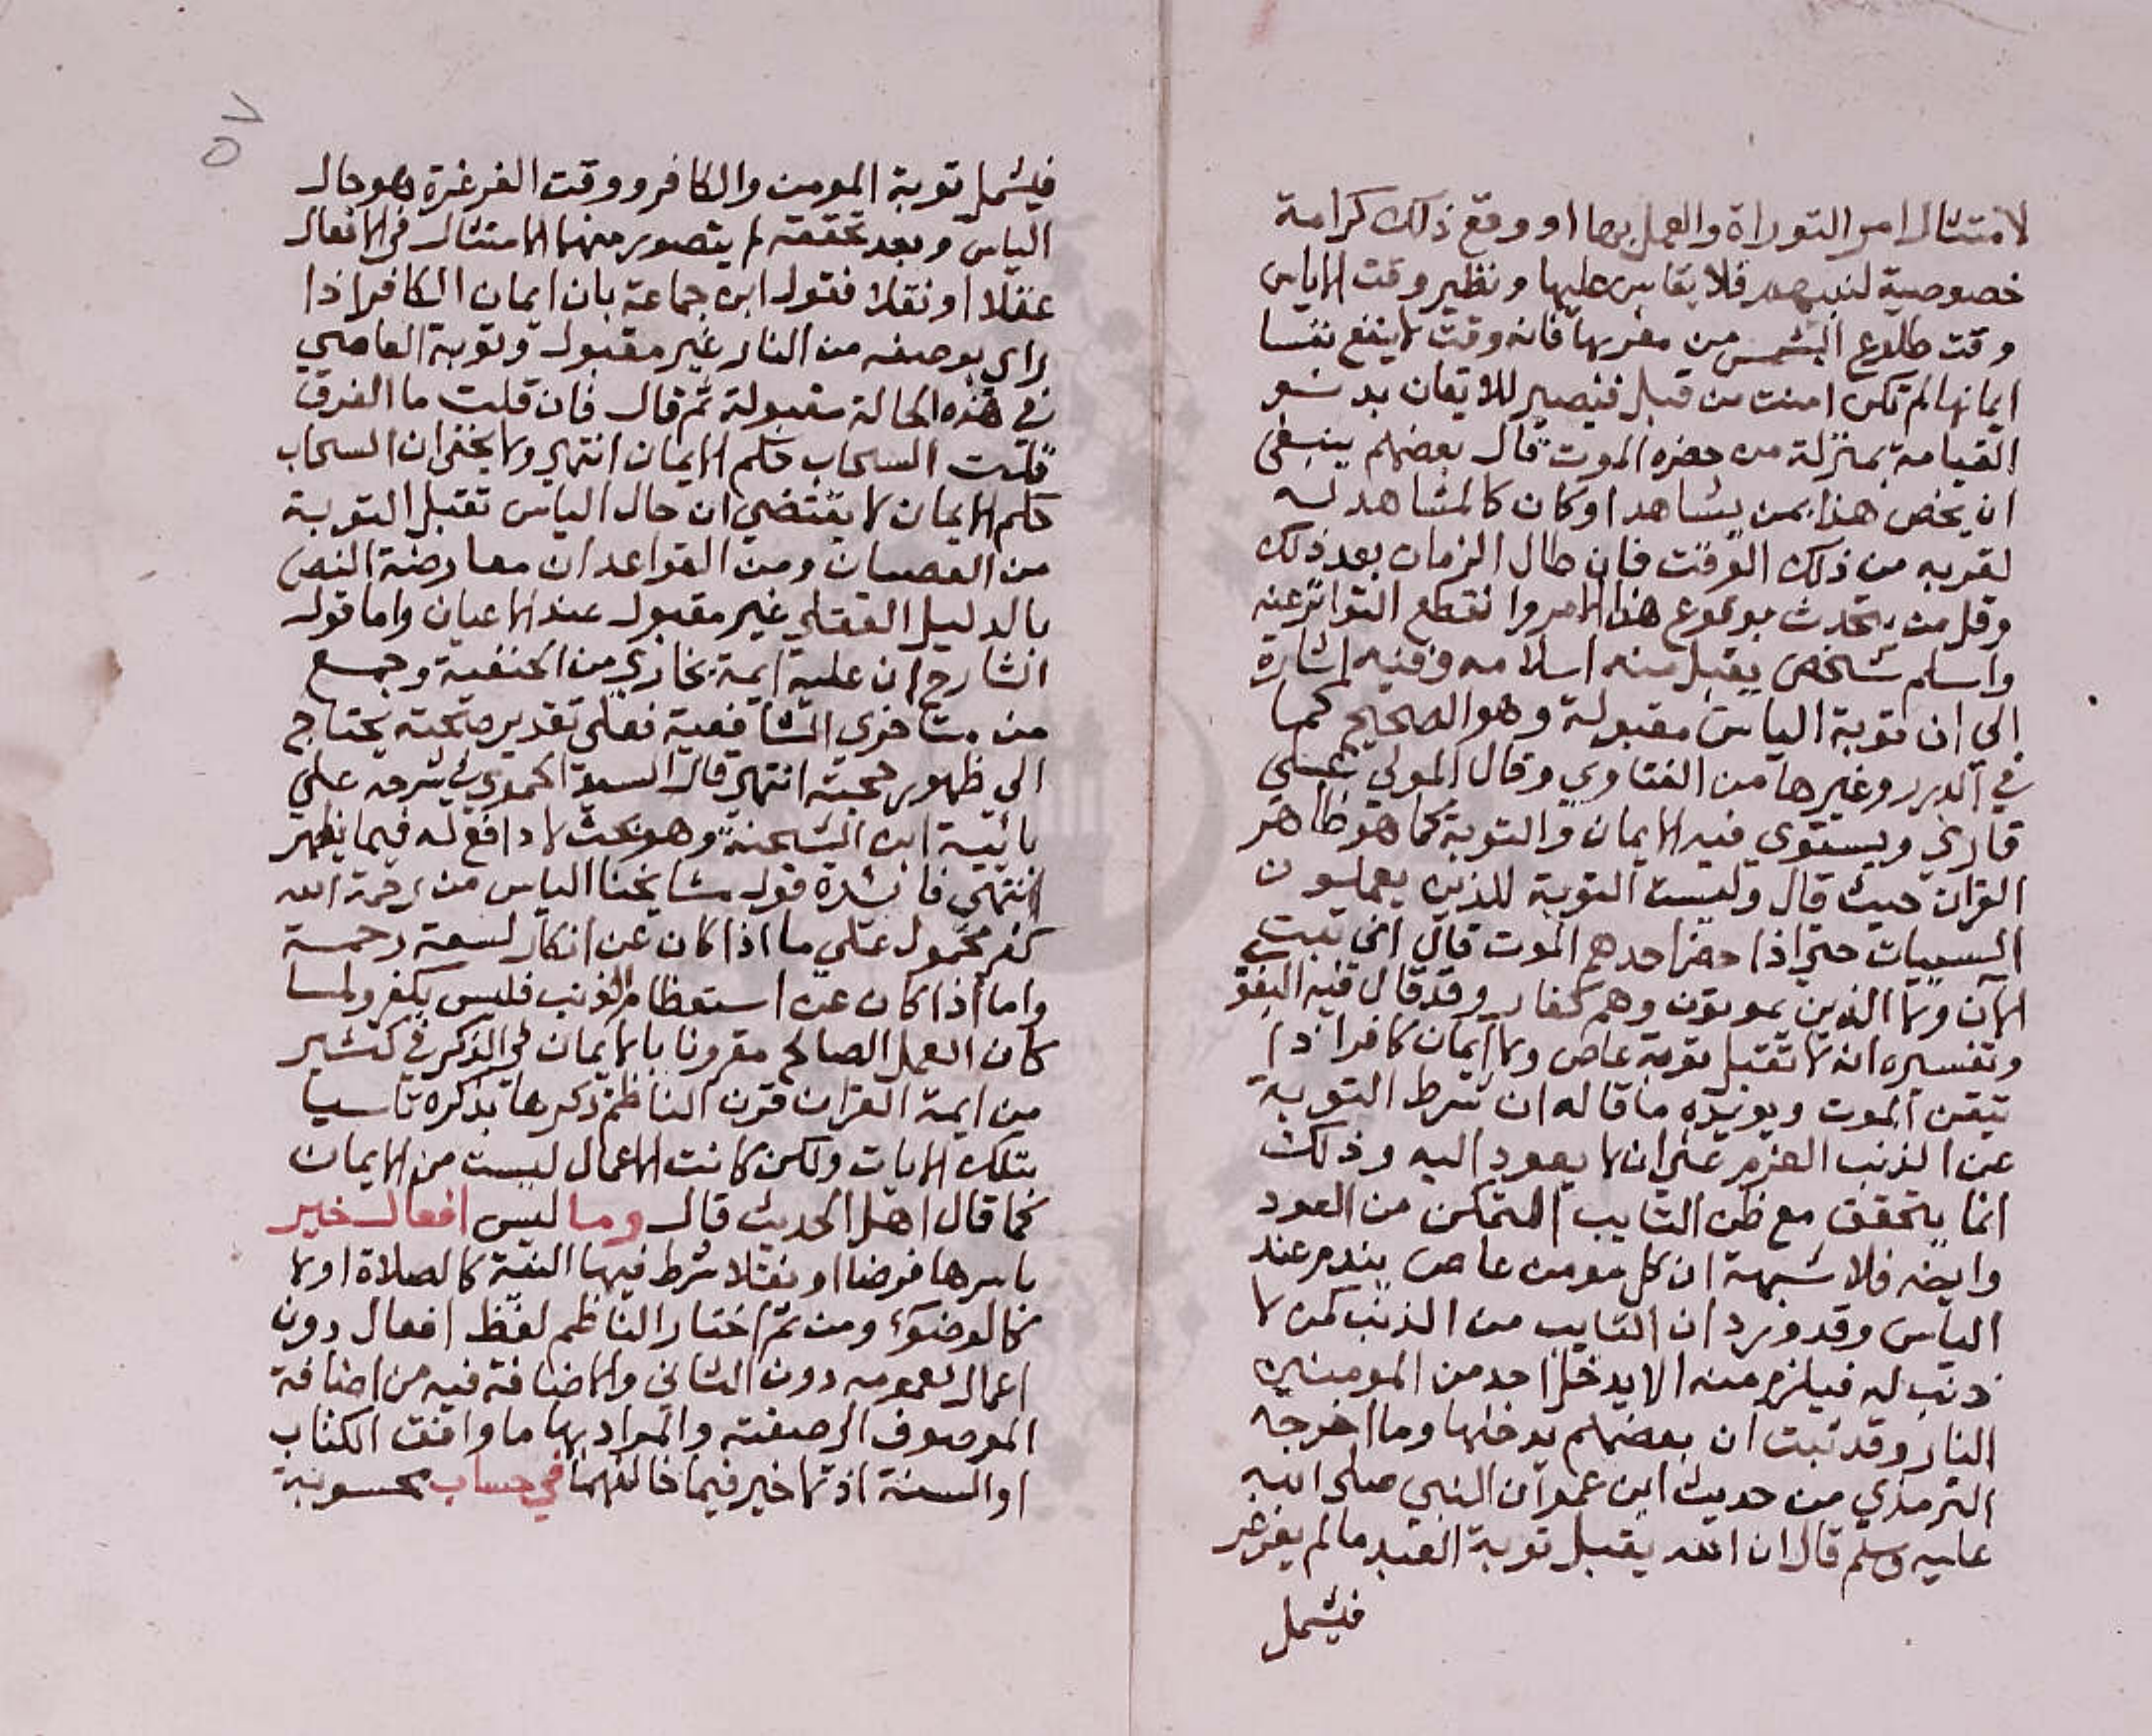 لامتثال امر التوراة والعمل بها او وقع ذلك كرامة
خصوصية لنبيهم فلا يقاس عليها ونظير وقت الاياس
وقت طلوع الشمس من مغربها فانه وقت لا ينفع نفسا
ايمانها لم تكن امنت من قبل فيصير للايقان بدنو
القيامة بمنزلة من حضره الموت قال بعضهم ينبغي
ان يخص هذا بمن يشاهد او كان كالمشاهد له
لقربه من ذلك الوقت فان طال الزمان بعد ذلك
وقل من يتحدث بوقوع هذا الامر وانقطع التواتر عنه
واسلم شخص يقبل منه اسلامه وفيه اشارة
الي ان توبة الياس مقبولة وهو الصحيح كما
في الدرر وغيرها من الفتاوي وقال المولي علي
قاري ويستوي فيه الايمان والتوبة كما هو ظاهر
القران حيث قال وليست التوبة للذين يعملون
السييات حتى اذا حضر احدهم الموت قال اني تبت
الان ولا الذين يموتون وهم كفار وقد قال فيه البغو
وتفسيره انه لا تقبل توبة عاص ولا ايمان كافر اذا
تيقن الموت ويويده ما قاله ان شرط التوبة
عن الذنب العزم على ان لا يعود اليه وذلك
انما يتحقق مع ظن التايب التمكن من العود
وايضه فلا شبهة ان كل مومن عاص يندم عند
الياس وقد ورد ان التايب من الذنب كمن لا
ذنب له فيلزم منه الا يدخل احد من المومنين
النار وقد ثبت ان بعضهم يدخلها وما اخرجه
الترمذي من حديث ابن عمر ان النبي صلى الله
عليه وسلم قال ان الله يقبل توبة العبد ما لم يغرغر
فيشمل
٥٧
فيشمل توبة المومن والكافر ووقت الغرغرة وهو حال
الياس وبعد تحققه لم يتصور منهما الامتثال في الافعال
عقلا او نقلا فقول ابن جماعة بان ايمان الكافر اذا
راي بوصفه من النار غير مقبول وتوبة العاصي
في هذه الحالة مقبولة ثم قال فان قلت ما الفرق
قلت السحاب حكم الايمان انتهى ولا يخفى ان السحاب
حكم الايمان لا يقتضي ان حال الياس تقبل التوبة
من العصيان ومن القواعد ان معارضة النص
بالدليل العقلي غير مقبول عند الاعيان واما قول
الشارح ان عليه ايمة بخاري من الحنفية وجمع
من متاخري الشافعية فعلى تقدير صحته يحتاج
الي ظهور حجته انتهى قال السيد الحموي في شرحه علي
بائية ابن الشحنة وهو بحث لا دافع له فيما يظهر
انتهي فائدة قول مشايخنا الياس من رحمة الله
كفر محمول علي ما اذا كان عن انكار لسعة رحمة
واما اذا كان عن استعظام الذنب فليس بكفر ولما
كان العمل الصالح مقرونا بالايمان في الذكر في كثير
من ايمة القران قرن الناظم ذكرها بذكره تاسيا
بتلك الايات ولكن كانت الاعمال ليست من الايمان
كما قال اهل الحديث قال وما ليس افعال خير
باسرها فرضا او نفلا شرط فيها النية كالصلاة اولا
كالوضوء ومن ثم اختار الناظم لفظ افعال دون
اعمال لعمومه دون الثاني والاضافة فيه من اضافة
الموصوف الى صفته والمراد بها ما وافقت الكتاب
او السنة اذ لا خير فيما خالفهما في حساب محسوبة